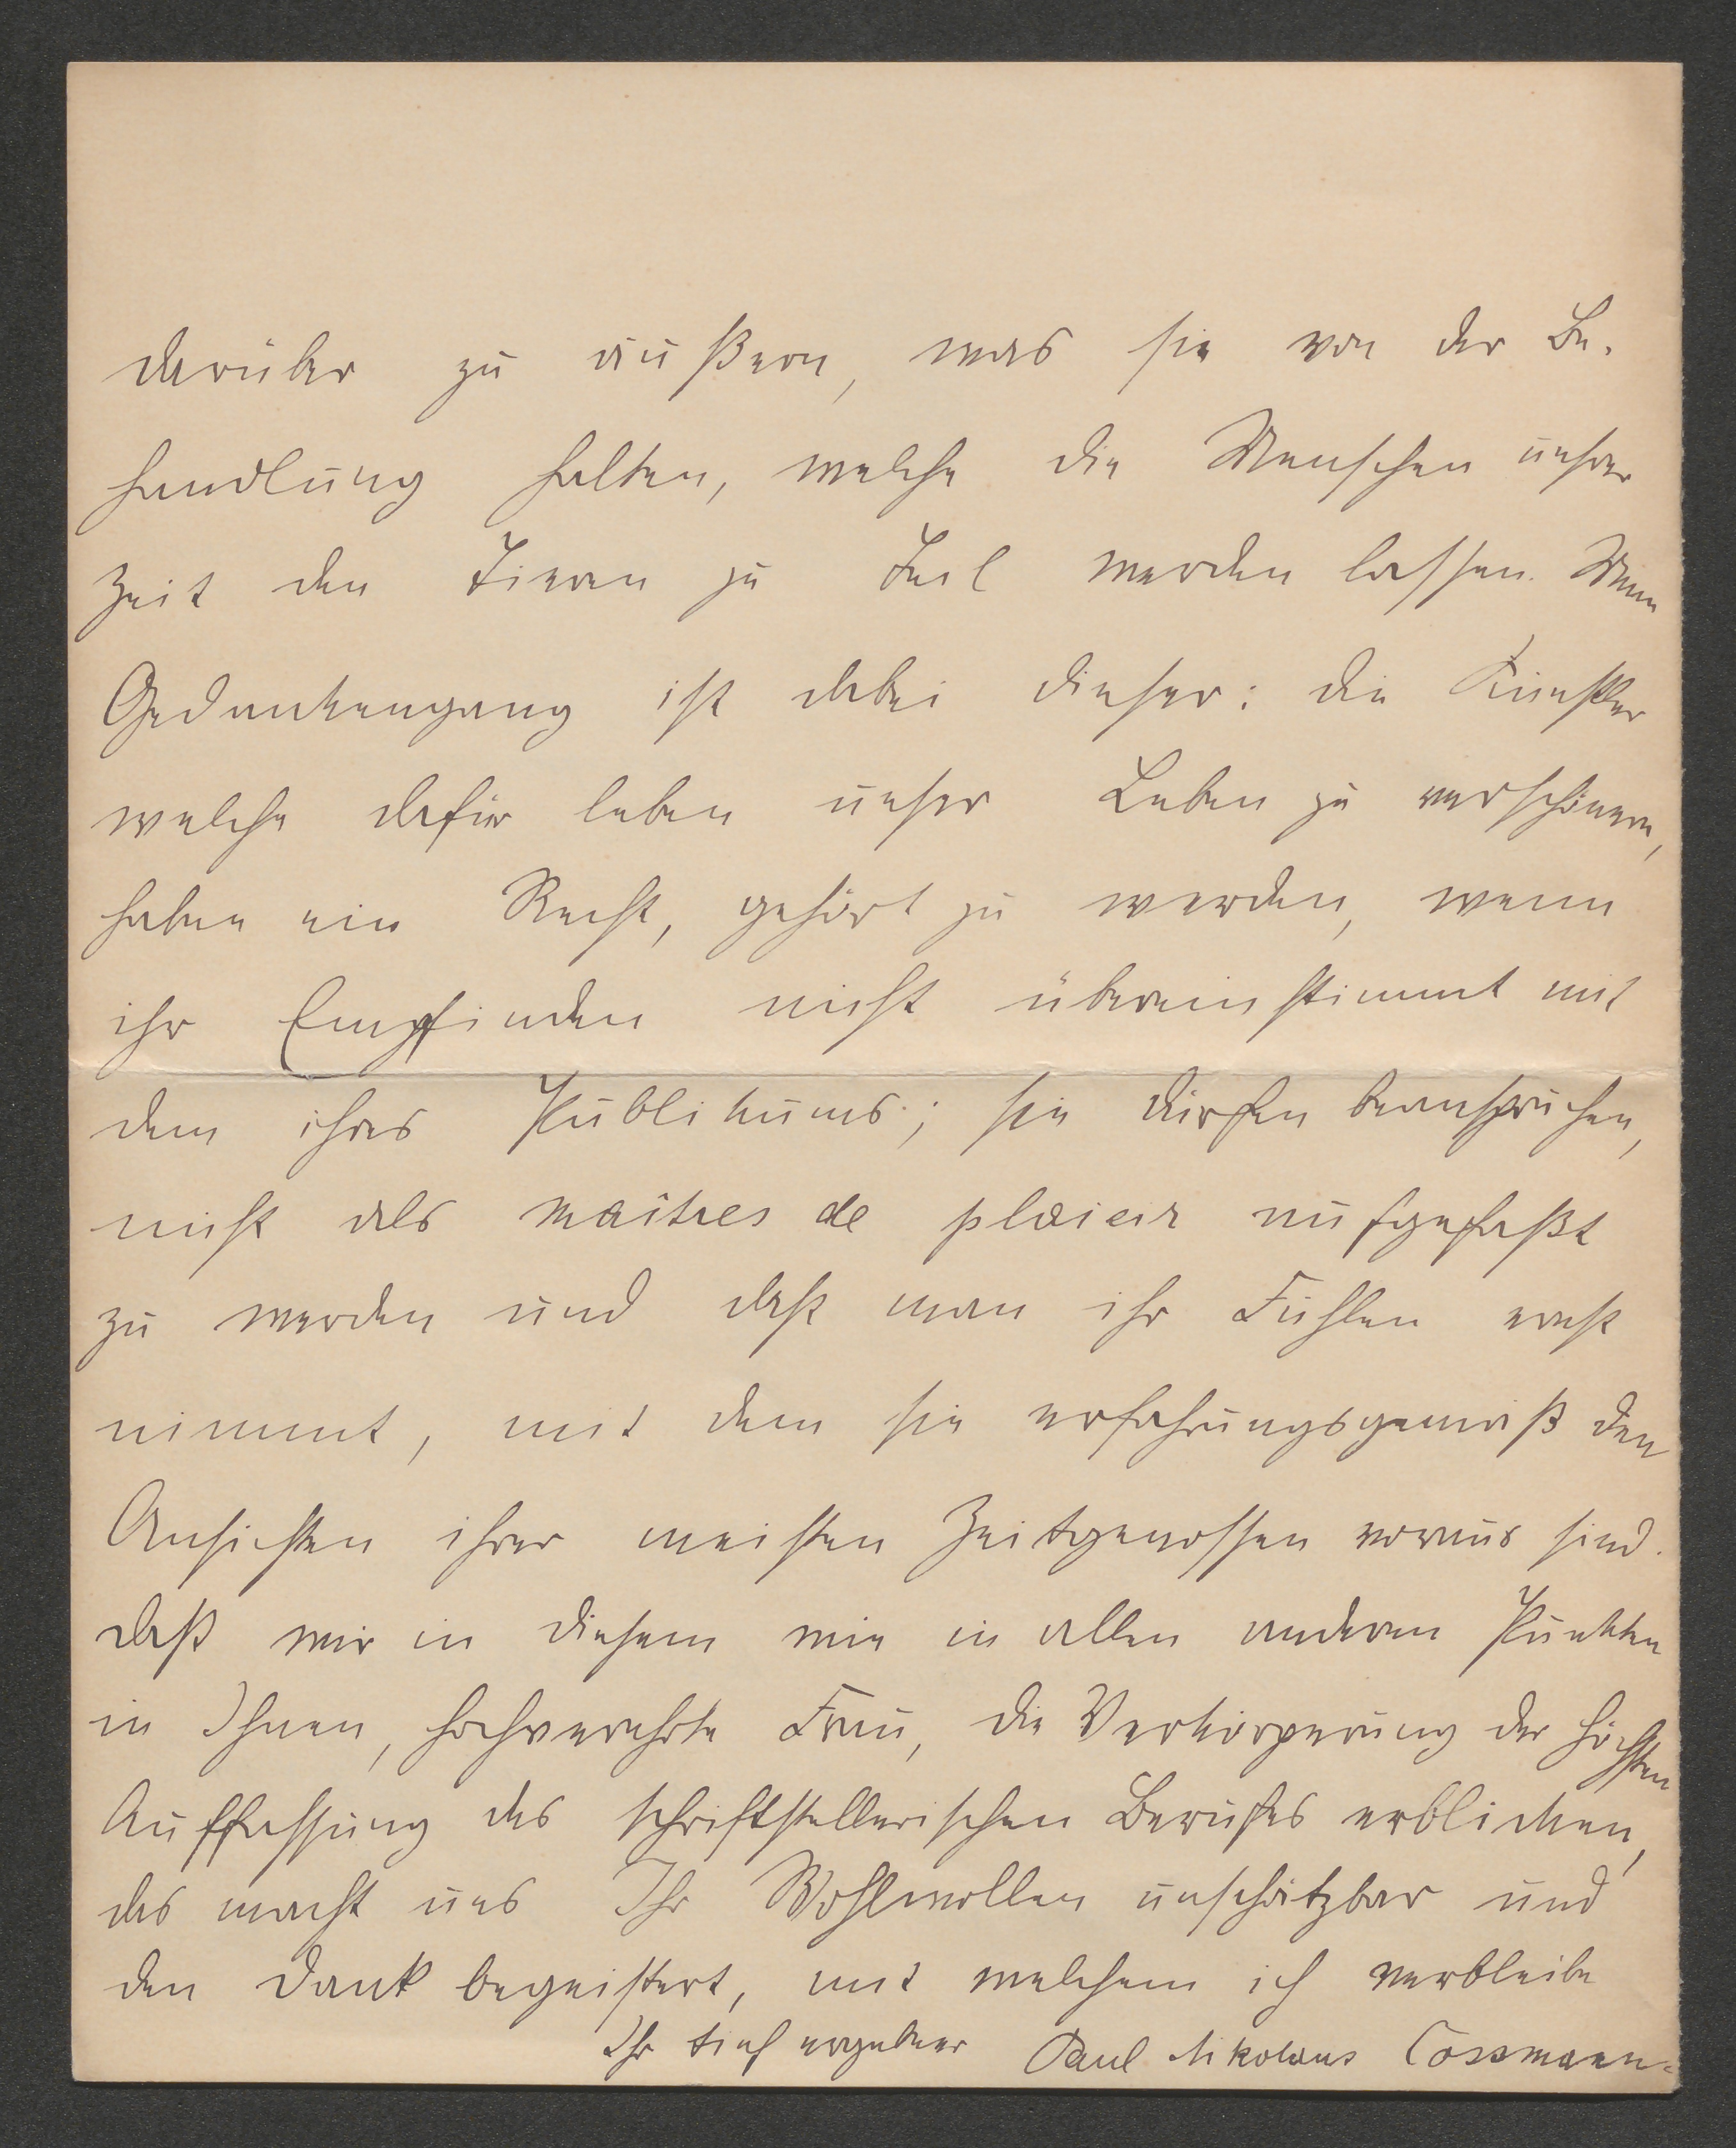 darüber zu äußern, was sie von der Be-
handlung halten, welche die Menschen unsrer
Zeit den Tieren zu Teil werden lassen. Mein
Gedankengang ist dabei dieser: die Künstler
welche dafür leben unser Leben zu verschönern,
haben ein Recht, gehört zu werden, wenn
ihr Empfinden nicht übereinstimmt mit
dem ihres Publikums; sie dürfen beanspruchen,
nicht als maîtres de plaisir aufgefaßt
zu werden und daß man ihr Fühlen ernst
nimmt, mit dem sie erfahrungsgemäß den
Ansichten ihrer meisten Zeitgenossen voraus sind.
Daß wir in diesem wie in allen anderen Punkten
in Ihnen, hochverehrte Frau, die Verkörperung der höchsten
Auffassung des schriftstellerischen Berufes erblicken,
das macht uns Ihr Wohlwollen unschätzbar und
den Dank begeistert, mit welchem ich verbleibe
Ihr tief ergebner Paul Nikolaus Cossmann.